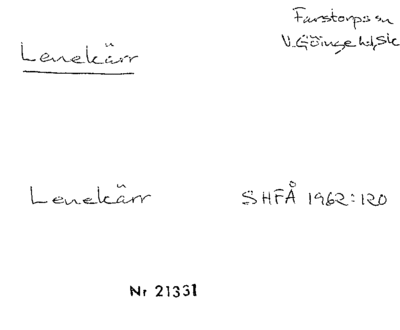 Farstorps sn
Lenekärr
V. Göinge hd, Sk
Lenekärr SHFÅ 1962:120
Nr 21331